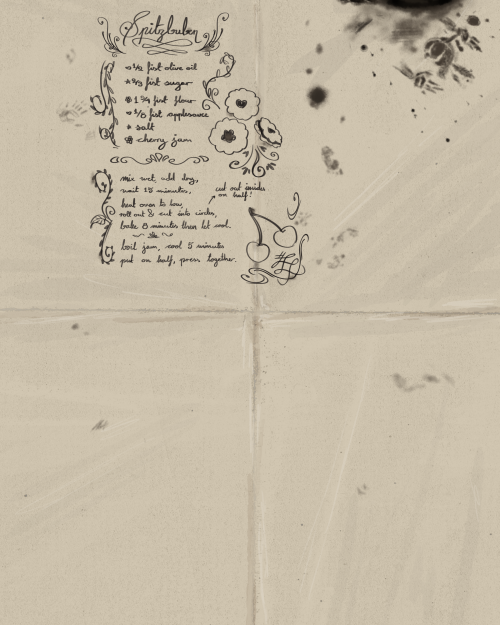 Spitzbuben
1/2 fist olive oil
2/3 fist sugar
1 3/4 fist flour
1/5 fist applesauce
salt
cherry jam
mix wet, add dry,
wait 15 minutes,
cut out insides
on half!
heat oven to low,
roll out & cut into circles,
bake 8 minutes then let cool.
boil jam, cool 5 minutes
put on half, press together.